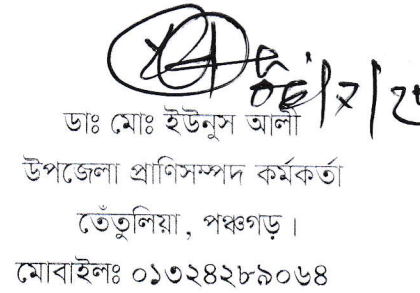 ডাঃ মোঃ ইউনুস আলী
উপজেলা প্রাণিসম্পদ কর্মকর্তা
তেঁতুলিয়া, পঞ্চগড়।
মোবাইলঃ ০১৩২৪২৮৯০৬৪